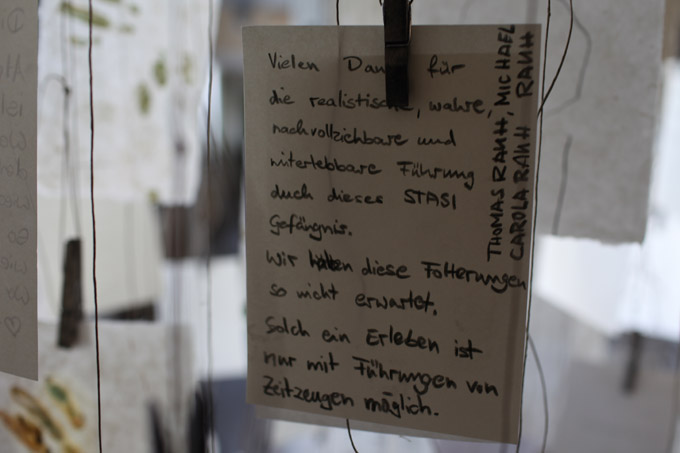 Vielen Dank für
die realistische, wahre,
nachvollziehbare und
miterlebbare Führung
duch dieses STASI
Gefängnis.
Wir haben diese Folterungen
so nicht erwartet.
Solch ein Erleben ist
nur mit Führungen von
Zeitzeugen möglich.
THOMAS RAHH, MICHAEL RAHH
CAROLA RAHH